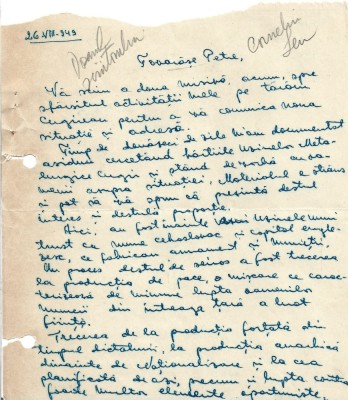 26 VIII-949
Corneliu
Leu
Tovarășe Petre,
Vă scriu a doua misivă, acum, spre
sfârșitul activității mele pe tărâm
Cugirean pentru a vă comunica noua
situație și adresă.
Timp de douăzeci de zile m'am documentat
asiduu cercetând hârtiile Uzinelor Meta-
lurgice Cugir și stând de vorbă cu oa-
menii asupra situației, Materialul e strâns
și pot să vă spun că prezintă destul
interes și destule
Aici, au fost înainte Uzinele unui
trust cu nume cehoslovac și capital engle-
zesc, ce fabricau armament și muniții.
Un proces destul de serios a fost trecerea
la producția de pace, o mișcare ce carac-
terizează de minune lupta oamenilor
muncii din întreaga țară a luat
ființă.
Trecerea de la producția forțată din
timpul dictaturii, la producția anarhică
dinainte de Naționalizare și la cea
planificată de azi, precum și lupta contra
foarte multor elemente oportuniste,